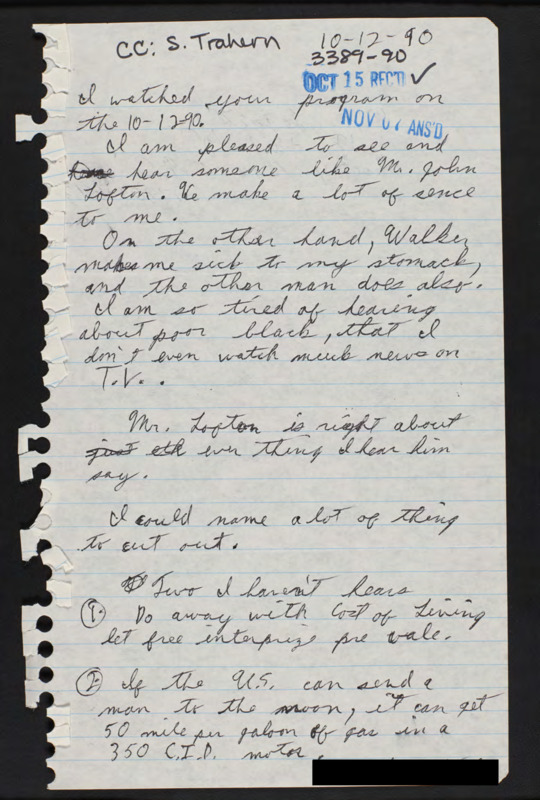 CC: S. Trahern
10-12-90
3389-90
OCT 15 REC'D ✓
NOV 07 ANS'D
I watched your program on
the 10-12-90.
I am pleased to see and
hear someone like Mr. John
Lofton. He make a lot of sence
to me.
On the other hand, Walker
makes me sick to my stomack,
and the other man does also.
I am so tired of hearing
about poor black, that I
don't even watch much news on
T.V..
Mr. Lofton is right about
just eth ever thing I hear him
say.
I could name a lot of thing
to cut out.
Two I haven't hears
1. Do away with Cost of Living
let free interprize pre vale.
2 If the U.S. can send a
man to the moon, it can get
50 mile per galoon of gas in a
350 C.I.D. motor.